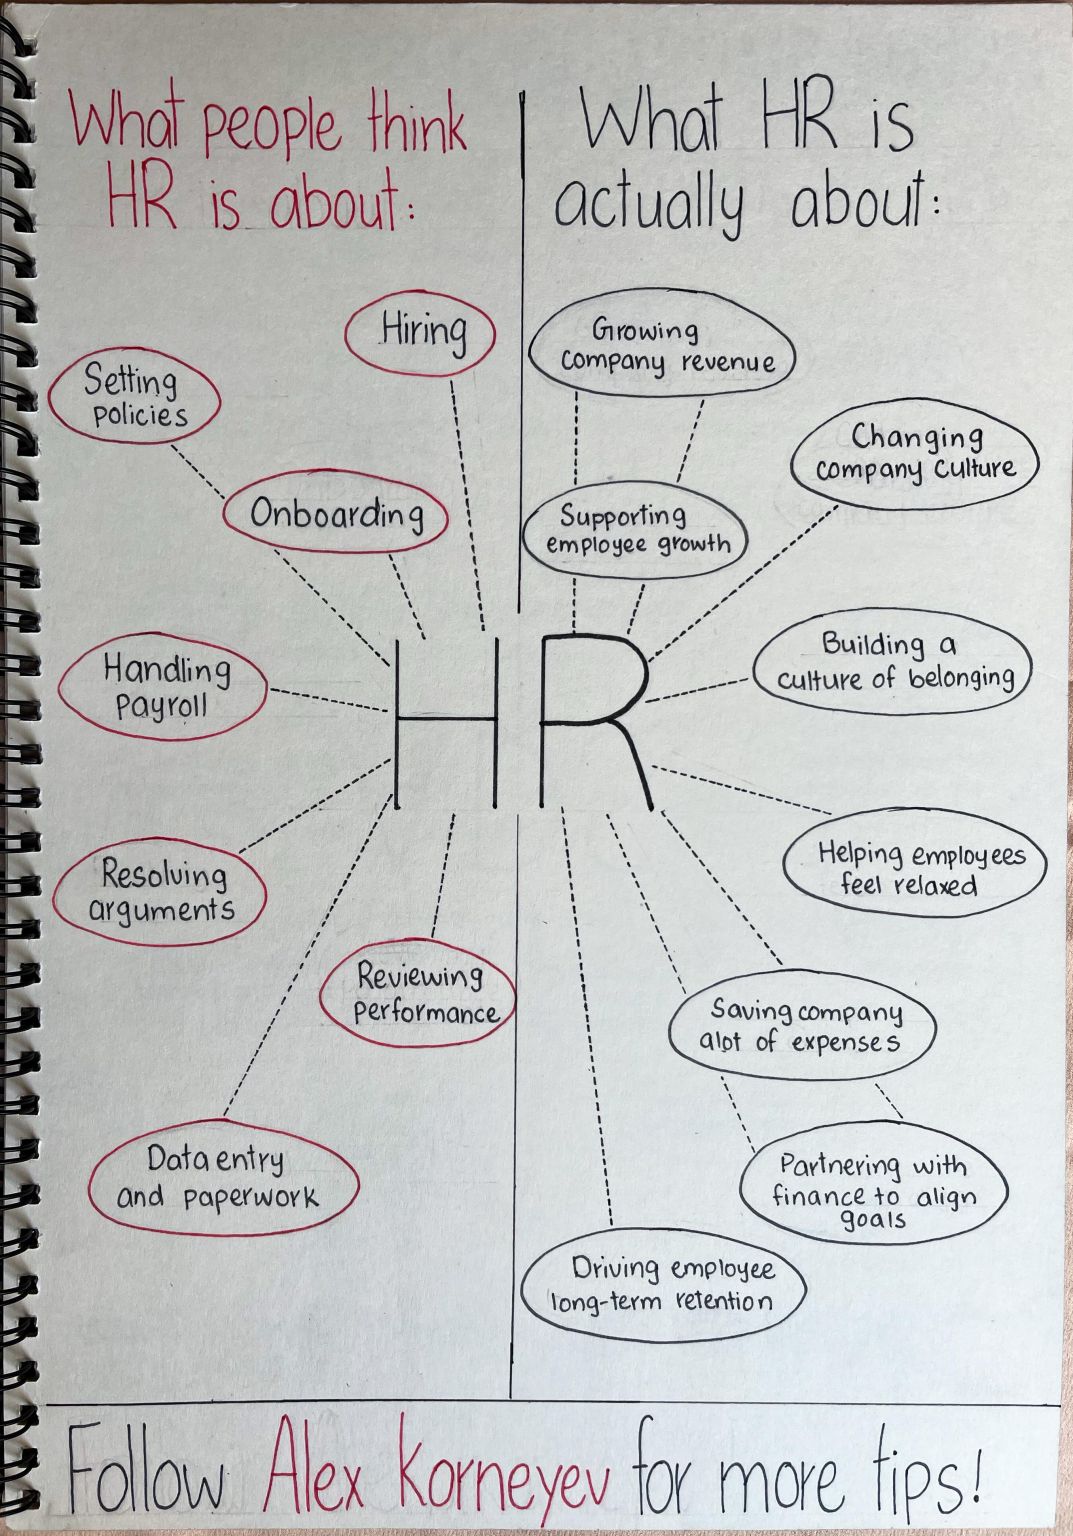 What people think
HR is about:
What HR is
actually about:
Hiring
Setting
policies
Onboarding
Handling
payroll
Resolving
arguments
Reviewing
performance
Data entry
and paperwork
HR
Growing
company revenue
Changing
company culture
Supporting
employee growth
Building a
culture of belonging
Helping employees
feel relaxed
Saving company
alot of expenses
Partnering with
finance to align
goals
Driving employee
long-term retention
Follow Alex Korneyev for more tips!